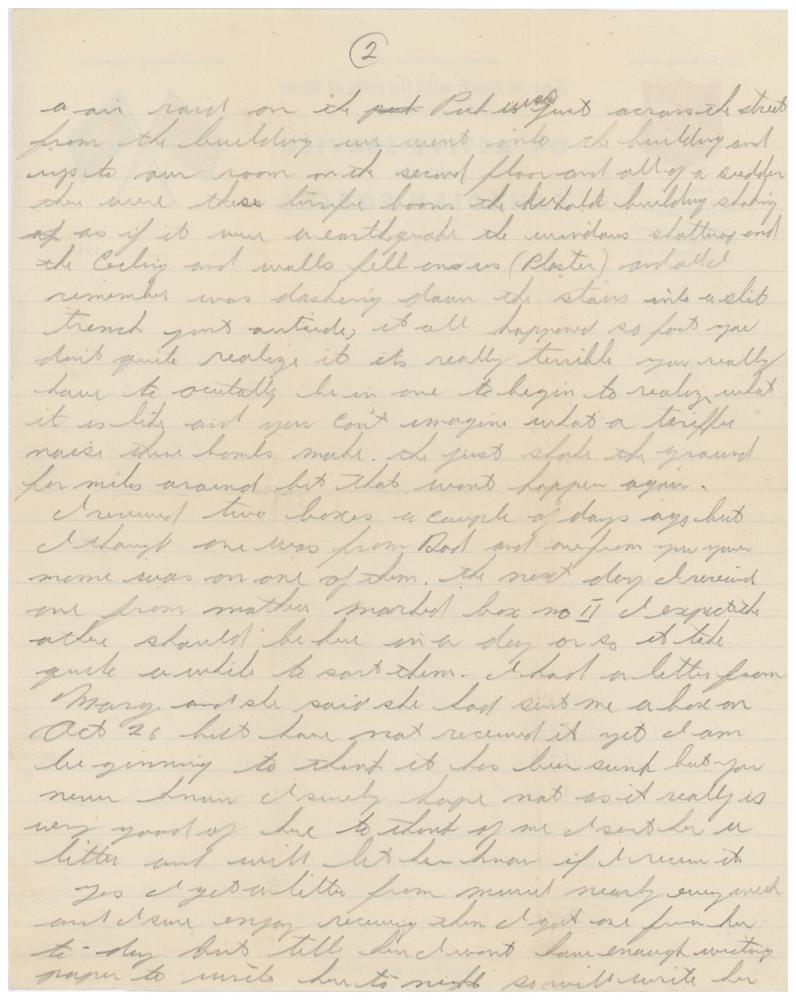 2
a air raid on the port Port was just across the street
from the building we went into the building and
up to our room on the second floor and all of a sudden
there were these terrific booms the whole building shaking
as if it were a earthquake the windows shattered and
the Ceiling and walls fell on us (Plaster) and all I
remember was dashing down the stairs into a slit
trench just outside, it all happened so fast you
don't quite realize it its really terrible you really
have to be in one to begin to realize what
it is like and you can't imagine what a teriffic
noise these bombs make. the just shake the ground
for miles around but that wont happen again.
I received two boxes a couple of days ago but
I thought one was from Dad and one from you your
name was on one of them. the next day I received
one from mother marked box no II I expect the
other should be here in a day or so it take
quite a while to sort them. I had a letter from
Marg and she said she had sent me a box on
Oct 26 but have not received it yet I am
beginning to think it has been sunk but you
never know I surely hope not as it really is
very good of her to think of me I sent her a
letter and will let her know if I receive it
yes I get a letter from muriel nearly every week
and I sure enjoy receiving them I got one from her
to-day but tell her I wont have enough writing
paper to write her to night so will write her